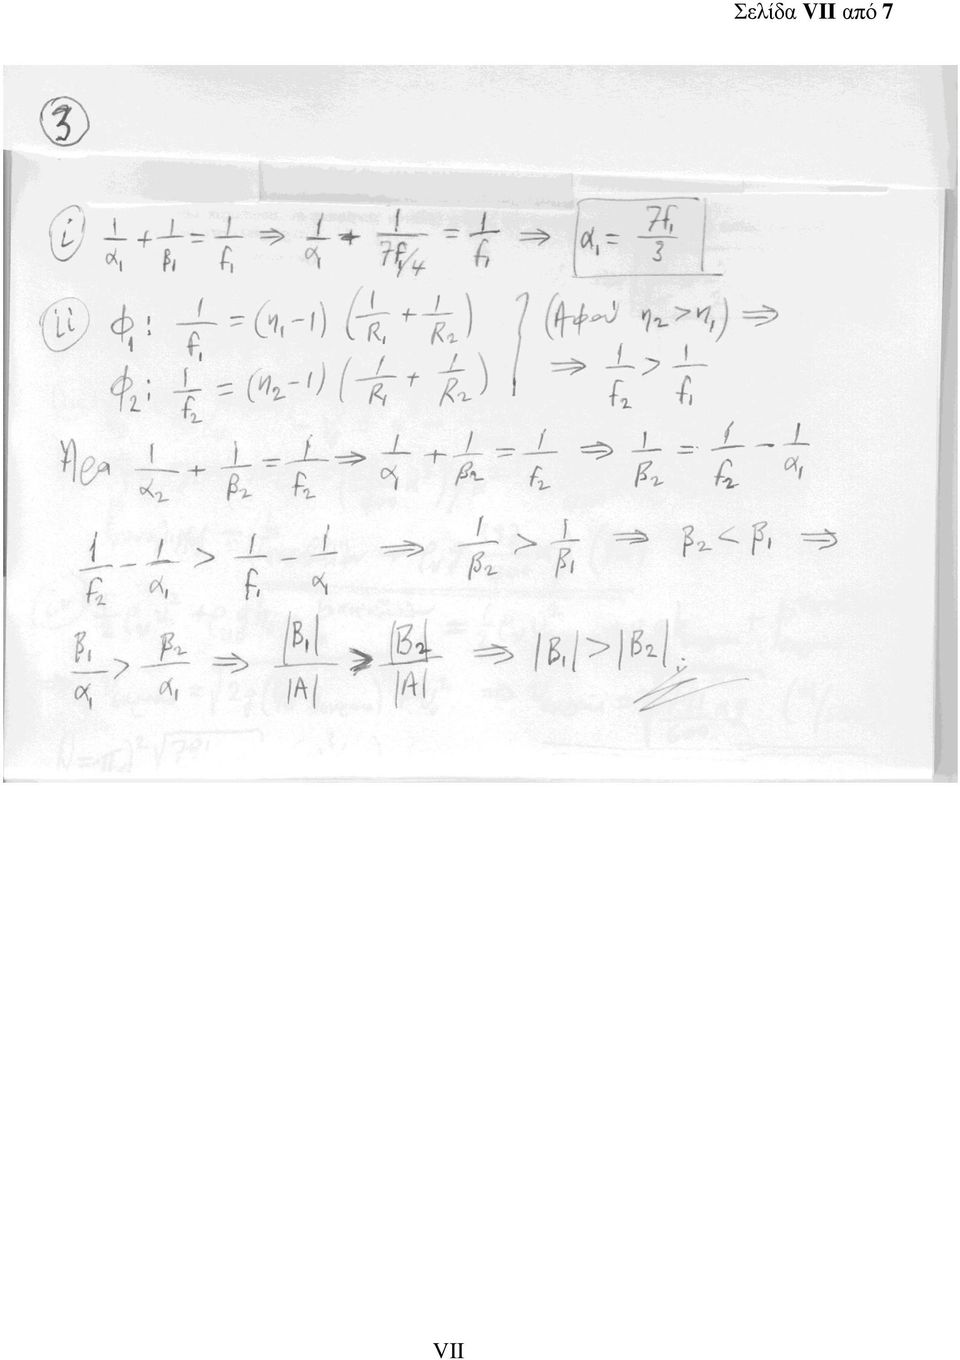 Σελίδα VII από 7
③
ⓘ 1/α₁ + 1/β₁ = 1/f₁ ⇒ 1/α₁ + 1/(7f₁/4) = 1/f₁ ⇒ α₁ = 7f₁/3
ⓘⓘ Φ₁: 1/f₁ = (η₁-1) (1/R₁ + 1/R₂) } (Αφού η₂>η₁) ⇒
Φ₂: 1/f₂ = (η₂-1) (1/R₁ + 1/R₂) ⇒ 1/f₂ > 1/f₁
Άρα 1/α₂ + 1/β₂ = 1/f₂ ⇒ 1/α₁ + 1/β₂ = 1/f₂ ⇒ 1/β₂ = 1/f₂ - 1/α₁
1/f₂ - 1/α₁ > 1/f₁ - 1/α₁ ⇒ 1/β₂ > 1/β₁ ⇒ β₂ < β₁ ⇒
β₁/α₁ > β₂/α₁ ⇒ |B₁|/|A| > |B₂|/|A| ⇒ |B₁| > |B₂|.
VII